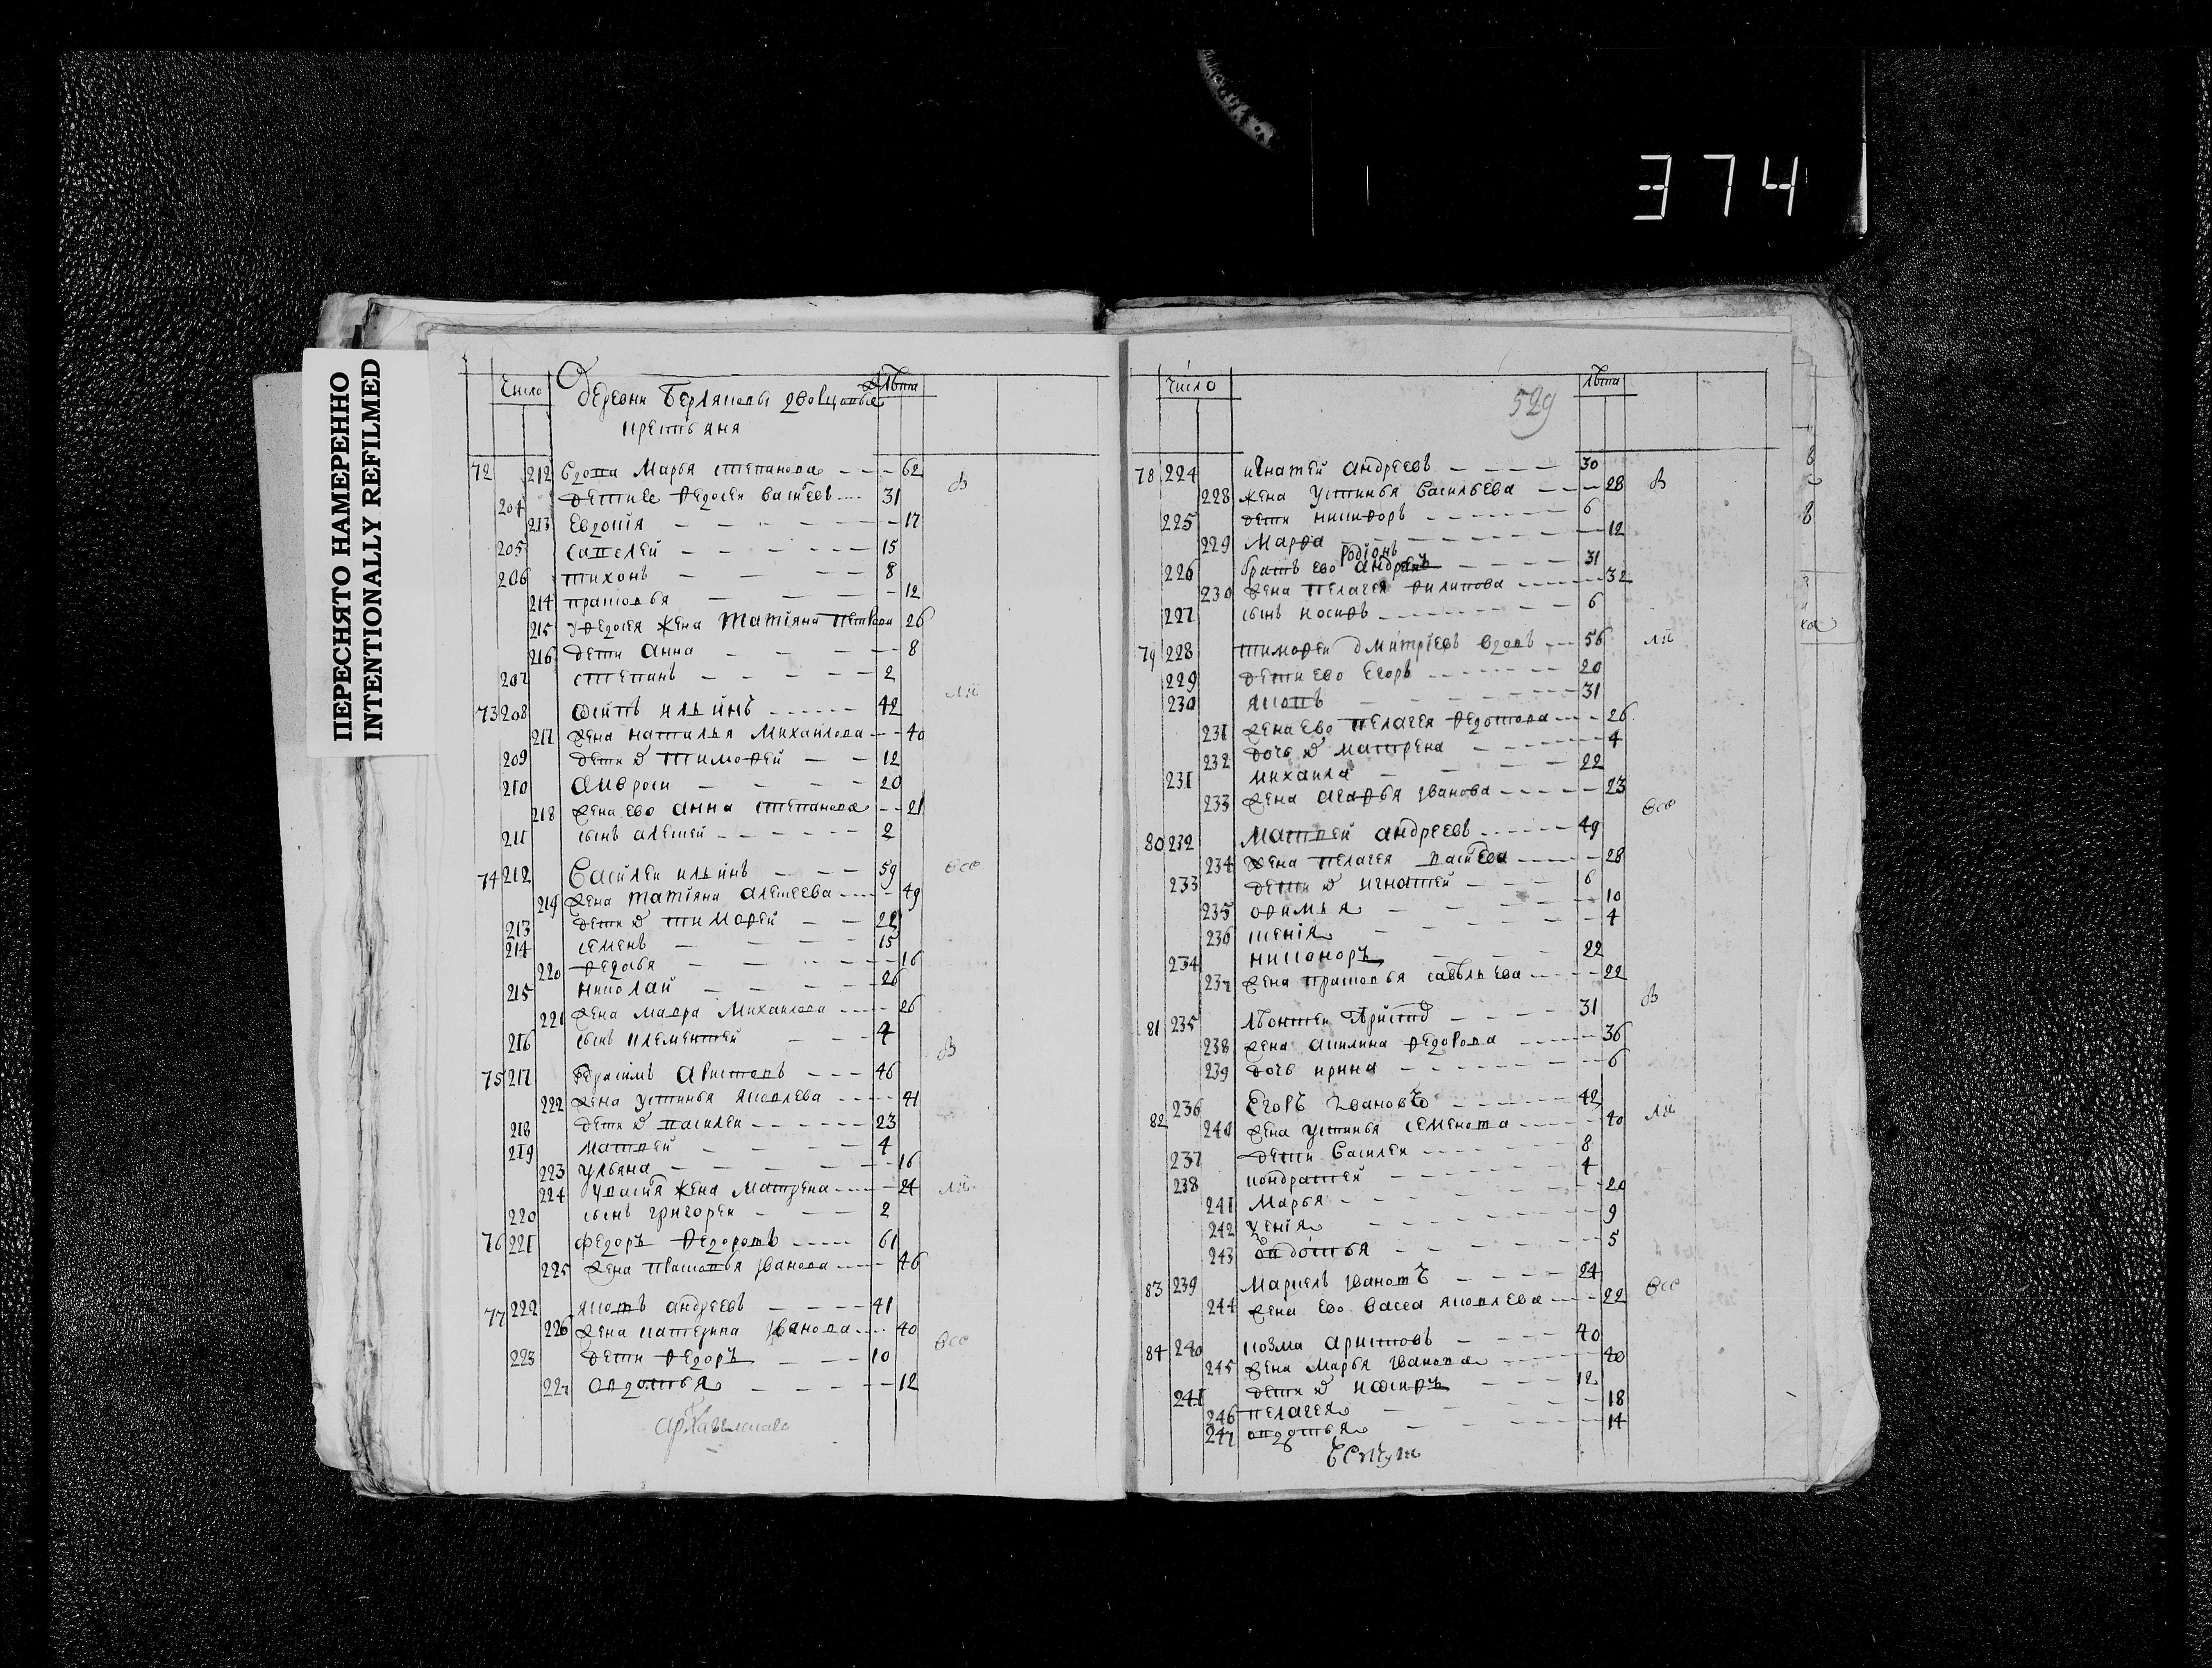 374
ПЕРЕСНЯТО НАМЕРЕННО
INTENTIONALLY REFILMED
Число лѣта
деревни
крестьяня
72 212 вдова Марья степанова 62
204 дети ее Федосеи 31
213 17
205 савелей 15
206 тихонъ 8
214 прасковья 12
215 жена татіяна 26
216 дети анна 8
207 степанъ 2
73 208 осипъ ильинъ 42
217 жена наталья михаилова 40
209 дети тимофей 12
210 амвроси 20
218 жена ево анна степанова 21
211 сынъ алексей 2
74 212 василеи ильинъ 59
219 жена татіяна алексеева 49
213 дети тимофей 22
214 семенъ 15
220 федосья 16
215 николай 26
221 жена мавра михаилова 26
216 сынъ климентей 4
75 217 герасимъ аристовъ 46
222 жена устинья яковлева 41
218 дети василеи 23
219 матвей 4
223 ульяна 16
224 жена матрена 24
220 сынъ григореи 2
76 221 федоръ федоровъ 61
225 жена прасковья иванова 46
77 222 яковъ андреевъ 41
226 жена катерина иванова 40
223 дети федоръ 10
227 авдотья 12
число лѣта
529
78 224 игнатей андреевъ 30
228 жена устинья васильева 28
225 дети никифоръ 6
229 марфа 12
родіонъ
226 братъ ево андреевъ 31
230 жена пелагея филипова 32
227 сынъ иосифъ 6
79 228 тимофеи дмитріевъ вдовъ 56
229 дети ево егоръ 20
230 яковъ 31
231 жена ево пелагея федотова 26
232 дочь матрена 4
231 михаила 22
233 жена агафья иванова 23
80 232 матвей андреевъ 49
234 жена пелагея 28
233 дети игнатей 6
235 афимья 10
236 4
234 никаноръ 22
237 жена прасковья савѣльева 22
81 235 31
238 жена акилина федорова 36
239 дочь ирина 6
82 236 егоръ ивановъ 42
240 жена устинья семенова 40
237 дети василеи 8
238 кондратей 4
241 марья 20
242 9
243 овдотья 5
83 239 маркелъ ивановъ 24
244 жена ево васса яковлева 22
84 240 козма аристовъ 40
245 жена марья иванова 40
241 дети иосифъ 12
246 пелагея 18
247 авдотья 14